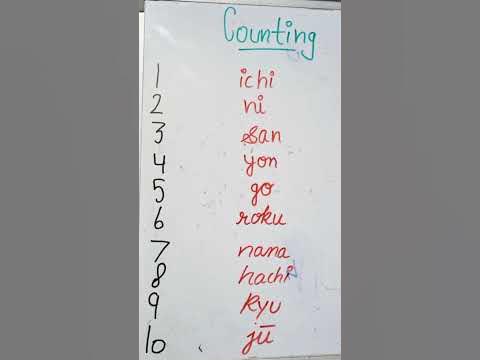 Counting
1 ichi
2 ni
3 san
4 yon
5 go
6 roku
7 nana
8 hachi
9 kyu
10 jū